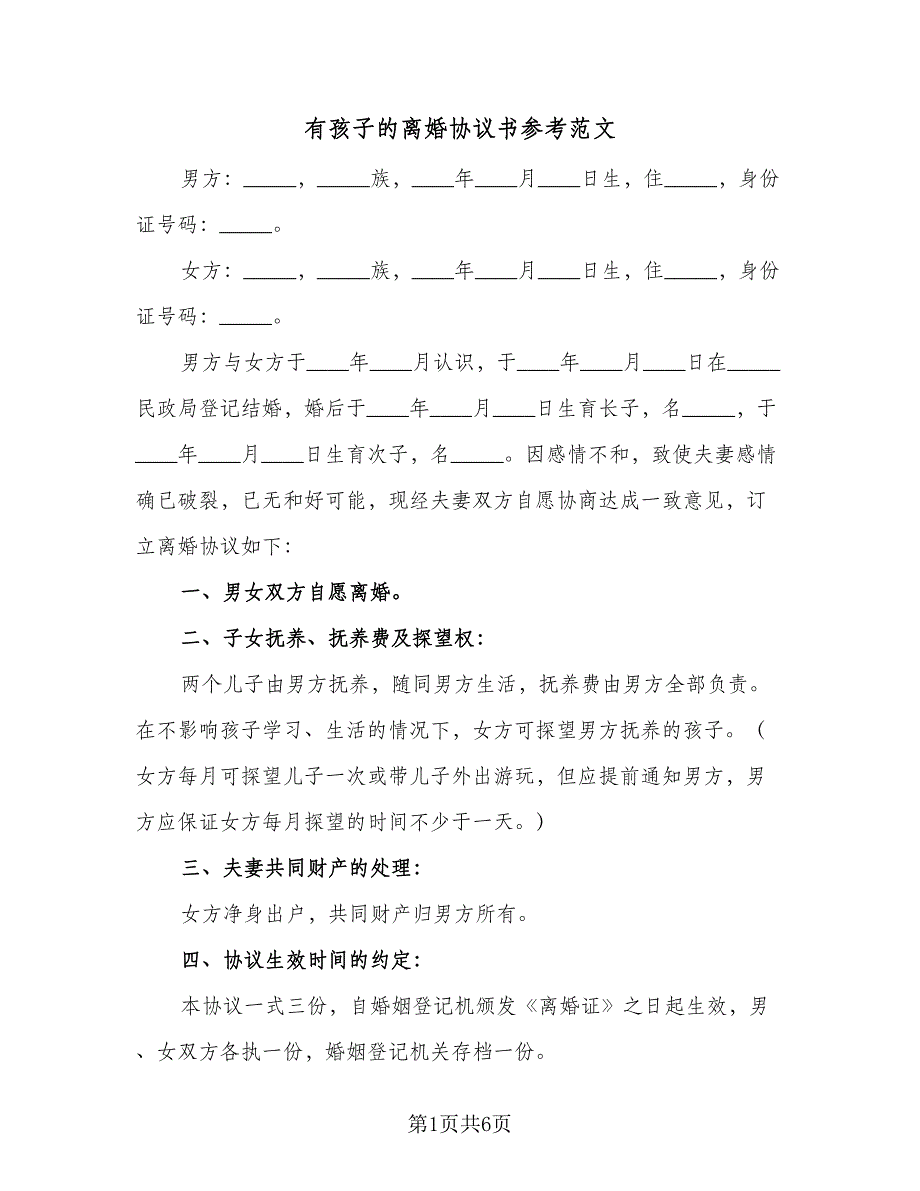 有孩子的离婚协议书参考范文
男方：_____，_____族，____年____月____日生，住_____，身份
证号码：_____。
女方：_____，_____族，____年____月____日生，住_____，身份
证号码：_____。
男方与女方于____年____月认识，于____年____月____日在_____
民政局登记结婚，婚后于____年____月____日生育长子，名_____，于
____年____月____日生育次子，名_____。因感情不和，致使夫妻感情
确已破裂，已无和好可能，现经夫妻双方自愿协商达成一致意见，订
立离婚协议如下：
一、男女双方自愿离婚。
二、子女抚养、抚养费及探望权：
两个儿子由男方抚养，随同男方生活，抚养费由男方全部负责。
在不影响孩子学习、生活的情况下，女方可探望男方抚养的孩子。（
女方每月可探望儿子一次或带儿子外出游玩，但应提前通知男方，男
方应保证女方每月探望的时间不少于一天。）
三、夫妻共同财产的处理：
女方净身出户，共同财产归男方所有。
四、协议生效时间的约定：
本协议一式三份，自婚姻登记机颁发《离婚证》之日起生效，男
、女双方各执一份，婚姻登记机关存档一份。
第1页共6页